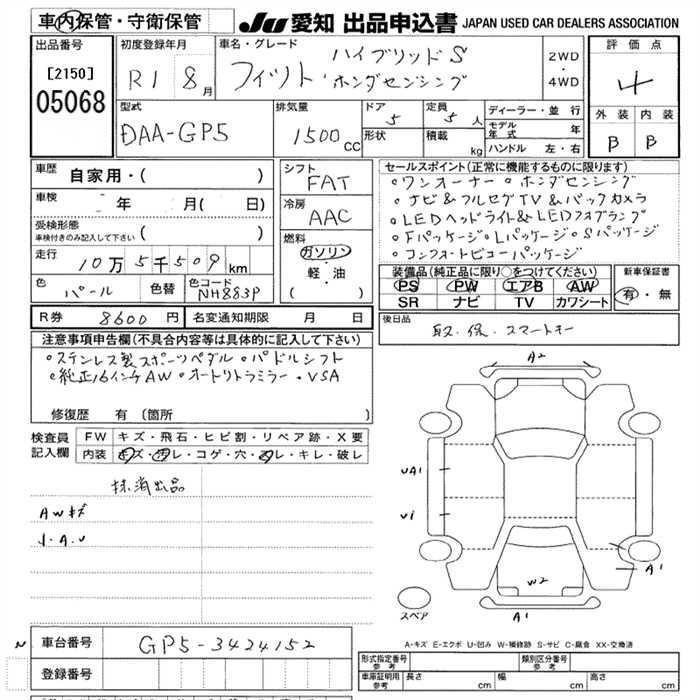 車内保管・守衛保管 JU 愛知 出品申込書 JAPAN USED CAR DEALERS ASSOCIATION
出品番号 初度登録年月 車名・グレード 評価点
[2150] R1 8月 フィット ハイブリッドS 2WD・4WD 4
05068 ホンダセンシング
型式 排気量 ドア 定員 ディーラー・並行 外装 内装
DAA-GP5 1500cc 5 5人 モデル年式 年 B B
形状 積載 kg ハンドル 左・右
車歴 自家用・( ) シフト セールスポイント(正常に機能するものに限ります)
FAT ・ワンオーナー ・ホンダセンシング
車検 年 月( 日) 冷房 ・ナビ&フルセグTV&バックカメラ
AAC ・LEDヘッドライト&LEDフォグランプ
受検形態 ・Fパッケージ・Lパッケージ・Sパッケージ
車検付きのみ記入して下さい( ) 燃料 ・コンフォートビューパッケージ
走行 10万5千509km ガソリン・軽・油 装備品(純正品に限り○をつけてください) 新車保証書
色 パール 色替 色コード NH883P PS PW エアB AW 有・無
SR ナビ TV カワシート
R券 8600円 名変通知期限 月 日 後日品
取.保.スマートキー
注意事項申告欄(不具合内容等は具体的に記入して下さい)
・ステンレス製スポーツペダル ・パドルシフト
・純正16インチAW ・オートリトラミラー ・VSA
修復歴 有(箇所 )
検査員記入欄 FW キズ・飛石・ヒビ割・リペア跡・X要
内装 キズ・汚レ・コゲ・穴・スレ・キレ・破レ
抹消出品
AWキズ
A2
UA1
W2
A1
A1
スペア
A-キズ E-エクボ U-凹み W-補修跡 S-サビ C-腐食 XX-交換済
車台番号 GP5-3424152
登録番号
形式指定番号 参考 類別区分番号 参考
車庫証明用 参考 長さ cm 幅 cm 高さ cm